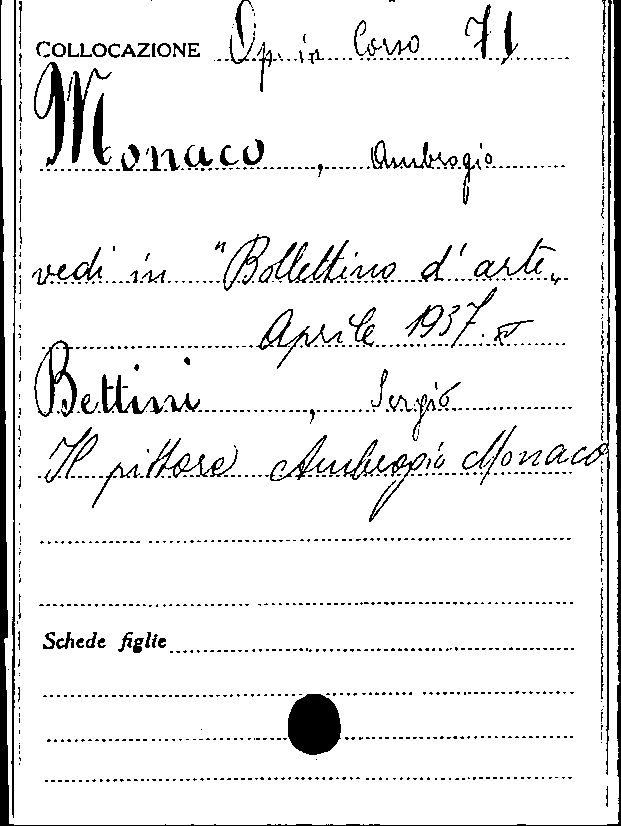 COLLOCAZIONE Op. in Corso 71
Monaco, Ambrogio
vedi in "Bollettino d'arte„
Aprile 1937. XV
Bettini, Sergio
Il pittore Ambrogio Monaco
Schede figlie